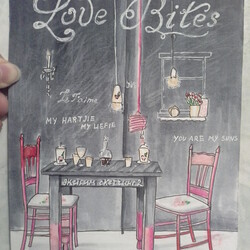 Love Bites
Je t'aime
MY HARTJIE
MY LIEFIE
YOU ARE MY SONS